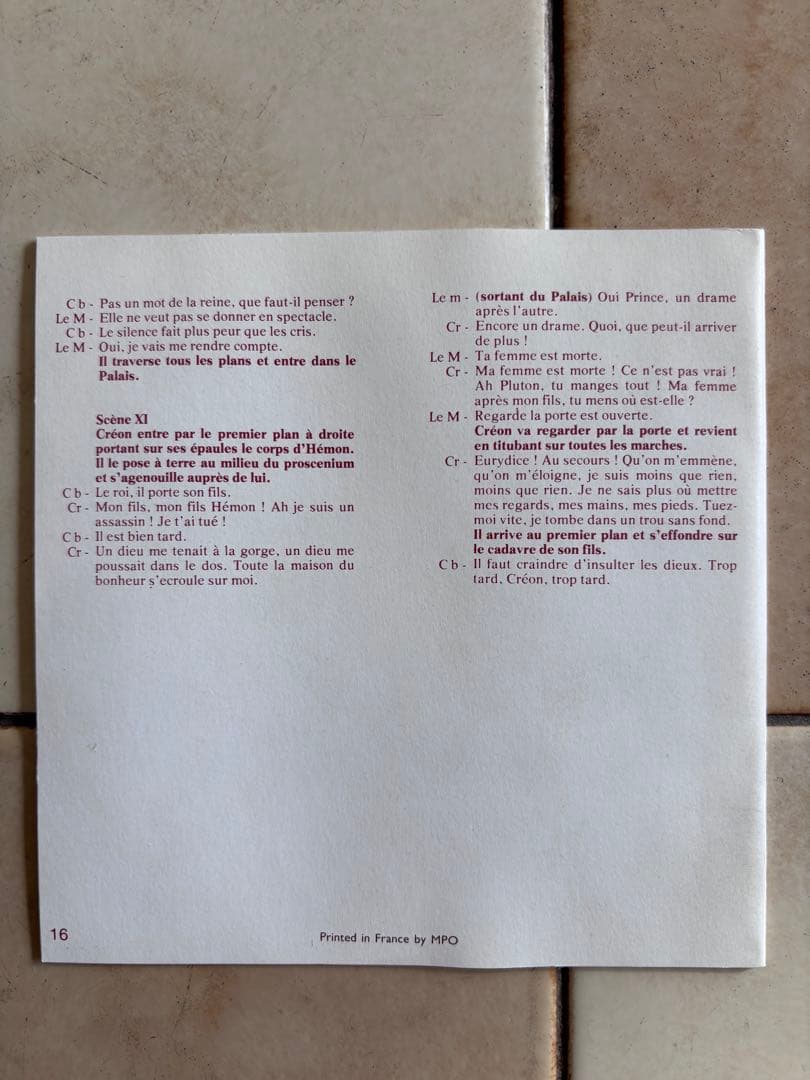 C b - Pas un mot de la reine, que faut-il penser ?
Le M - Elle ne veut pas se donner en spectacle.
C b - Le silence fait plus peur que les cris.
Le M - Oui, je vais me rendre compte.
Il traverse tous les plans et entre dans le
Palais.
Scène XI
Créon entre par le premier plan à droite
portant sur ses épaules le corps d'Hémon.
Il le pose à terre au milieu du proscenium
et s'agenouille auprès de lui.
C b - Le roi, il porte son fils.
Cr - Mon fils, mon fils Hémon ! Ah je suis un
assassin ! Je t'ai tué !
C b - Il est bien tard.
Cr - Un dieu me tenait à la gorge, un dieu me
poussait dans le dos. Toute la maison du
bonheur s'ecroule sur moi.
Le m - (sortant du Palais) Oui Prince, un drame
après l'autre.
Cr - Encore un drame. Quoi, que peut-il arriver
de plus !
Le M - Ta femme est morte.
Cr - Ma femme est morte ! Ce n'est pas vrai !
Ah Pluton, tu manges tout ! Ma femme
après mon fils, tu mens où est-elle ?
Le M - Regarde la porte est ouverte.
Créon va regarder par la porte et revient
en titubant sur toutes les marches.
Cr - Eurydice ! Au secours ! Qu'on m'emmène,
qu'on m'éloigne, je suis moins que rien,
moins que rien. Je ne sais plus où mettre
mes regards, mes mains, mes pieds. Tuez-
moi vite, je tombe dans un trou sans fond.
Il arrive au premier plan et s'effondre sur
le cadavre de son fils.
C b - Il faut craindre d'insulter les dieux. Trop
tard, Créon, trop tard.
16
Printed in France by MPO